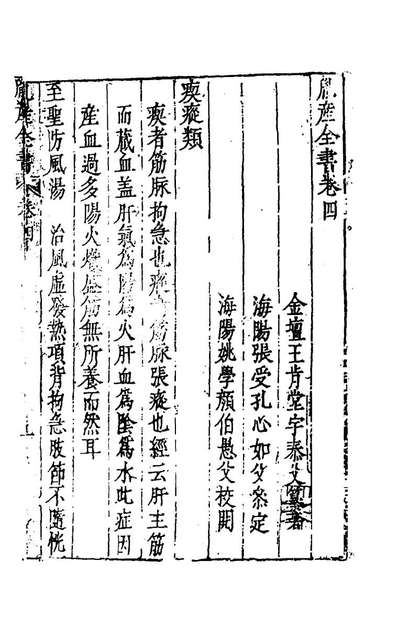 胤產全書卷四
金壇王肯堂宇泰父
海陽張受孔心如父叅定
海陽姚學顏伯愚父校閱
瘈瘲類
瘈者筋脉拘急也瘲筋脉張瘲也經云肝主筋
而蔵血盖肝氣為陽為火肝血為陰為水此症因
產血過多陽火熾盛筋無所養而然耳
至聖防風湯 治風虚發熱項背拘急肢節不隨恍
胤產全書 卷四